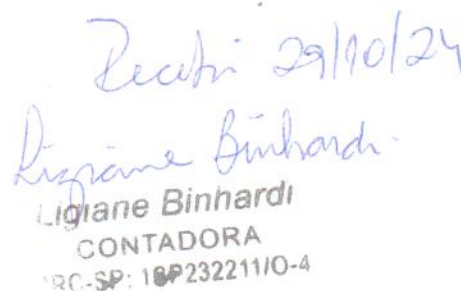 Recebi 29/10/24
Ligiane Binhardi.
Ligiane Binhardi
CONTADORA
CRC-SP: 1SP232211/O-4